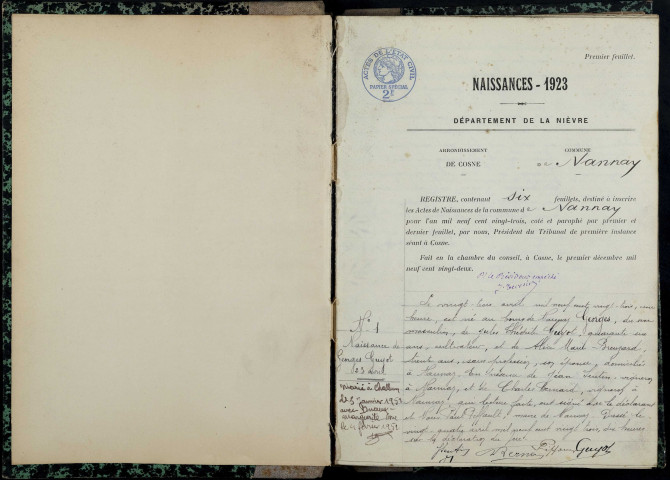 Premier feuillet.
ACTES DE L'ÉTAT CIVIL
PAPIER SPÉCIAL
2F
NAISSANCES - 1923
DÉPARTEMENT DE LA NIÈVRE
ARRONDISSEMENT
DE COSNE
COMMUNE
de Nannay
REGISTRE, contenant six feuillets, destiné à inscrire
les Actes de Naissances de la commune de Nannay
pour l'an mil neuf cent vingt-trois, coté et paraphé par premier et
dernier feuillet, par nous, Président du Tribunal de première instance
séant à Cosne.
Fait en la chambre du conseil, à Cosne, le premier décembre mil
neuf cent vingt-deux.
N° 1
Naissance de
Georges Guyot
23 avril
marié à
le 5 janvier 1952
avec
le 4 février 1952
Le vingt trois avril mil neuf cent vingt trois, une
heure, est né au bourg de Nannay Georges, du sexe
masculin, de Jules Théodule Guyot, quarante un
ans, cultivateur, et de Marie
ans, sans profession, son épouse, domiciliés
à Nannay. En présence de Jean vigneron
à Nannay, et de Charles vigneron à
Nannay, qui, lecture faite, ont signé avec le déclarant
et Nous Paul maire de Nannay. Dressé le
vingt quatre avril mil neuf cent vingt trois dix heures
sur la déclaration du père.
Guyot